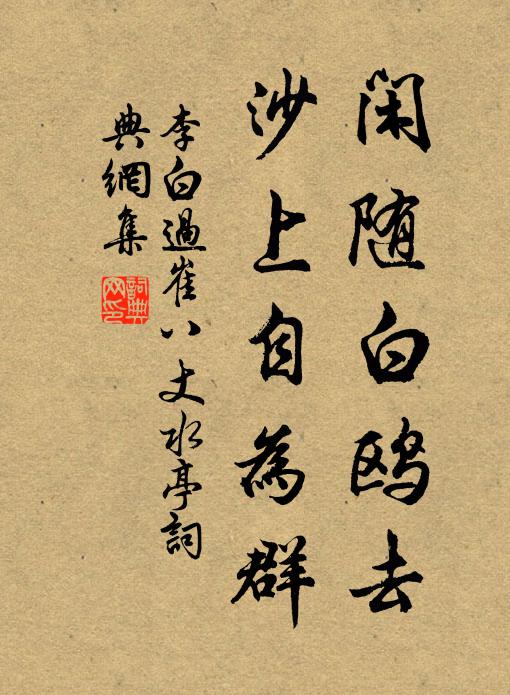 闲随白鸥去
沙上自為群
李白過崔八丈水亭詞
典網集
詞典网印